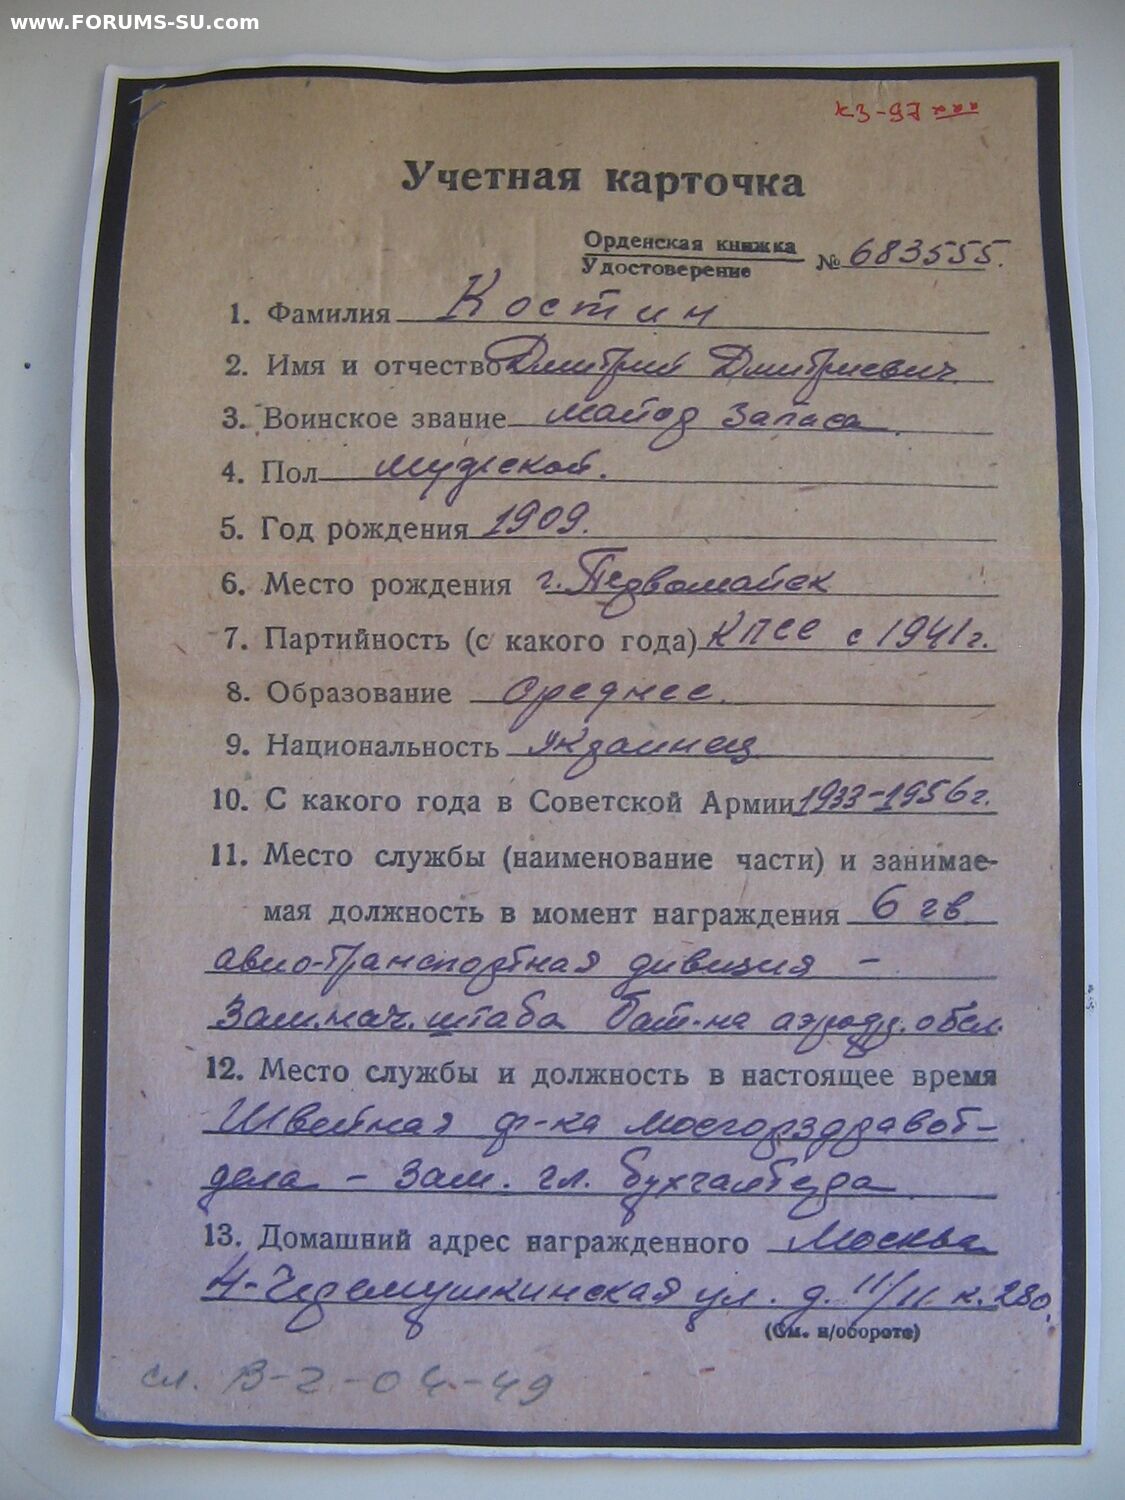 www.FORUMS-SU.com
КЗ-97
Учетная карточка
Орденская книжка
Удостоверение № 683555.
1. Фамилия Костин
2. Имя и отчество Дмитрий Дмитриевич
3. Воинское звание майор запаса.
4. Пол мужской.
5. Год рождения 1909.
6. Место рождения г. Первомайск
7. Партийность (с какого года) КПСС с 1941 г.
8. Образование среднее.
9. Национальность украинец
10. С какого года в Советской Армии 1933-1956 г.
11. Место службы (наименование части) и занимае-
мая должность в момент награждения 6 гв
авио-транспортная дивизия –
Зам.нач. штаба бат-на аэродр. обсл.
12. Место службы и должность в настоящее время
Швейная ф-ка Мосгорздравот-
дела – зам. гл. бухгалтера
13. Домашний адрес награжденного Москва
Н-Черемушкинская ул. д. 11/11 к. 280.
(См. н/обороте)
сл. В-2-04-49